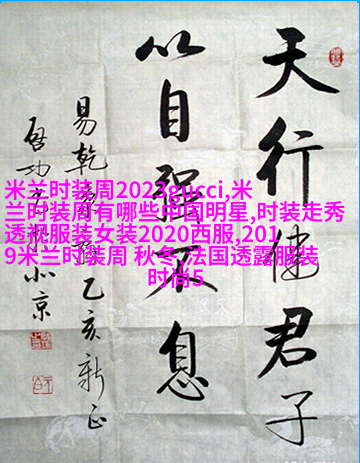 天行健君子
以自強不息
易乾乙亥新正
啓功北京
米兰时装周2023gucci,米
兰时装周有哪些中国明星,时装走秀
透视服装女装2020西服,201
9米兰时装周 秋冬,法国透露服装
时尚5